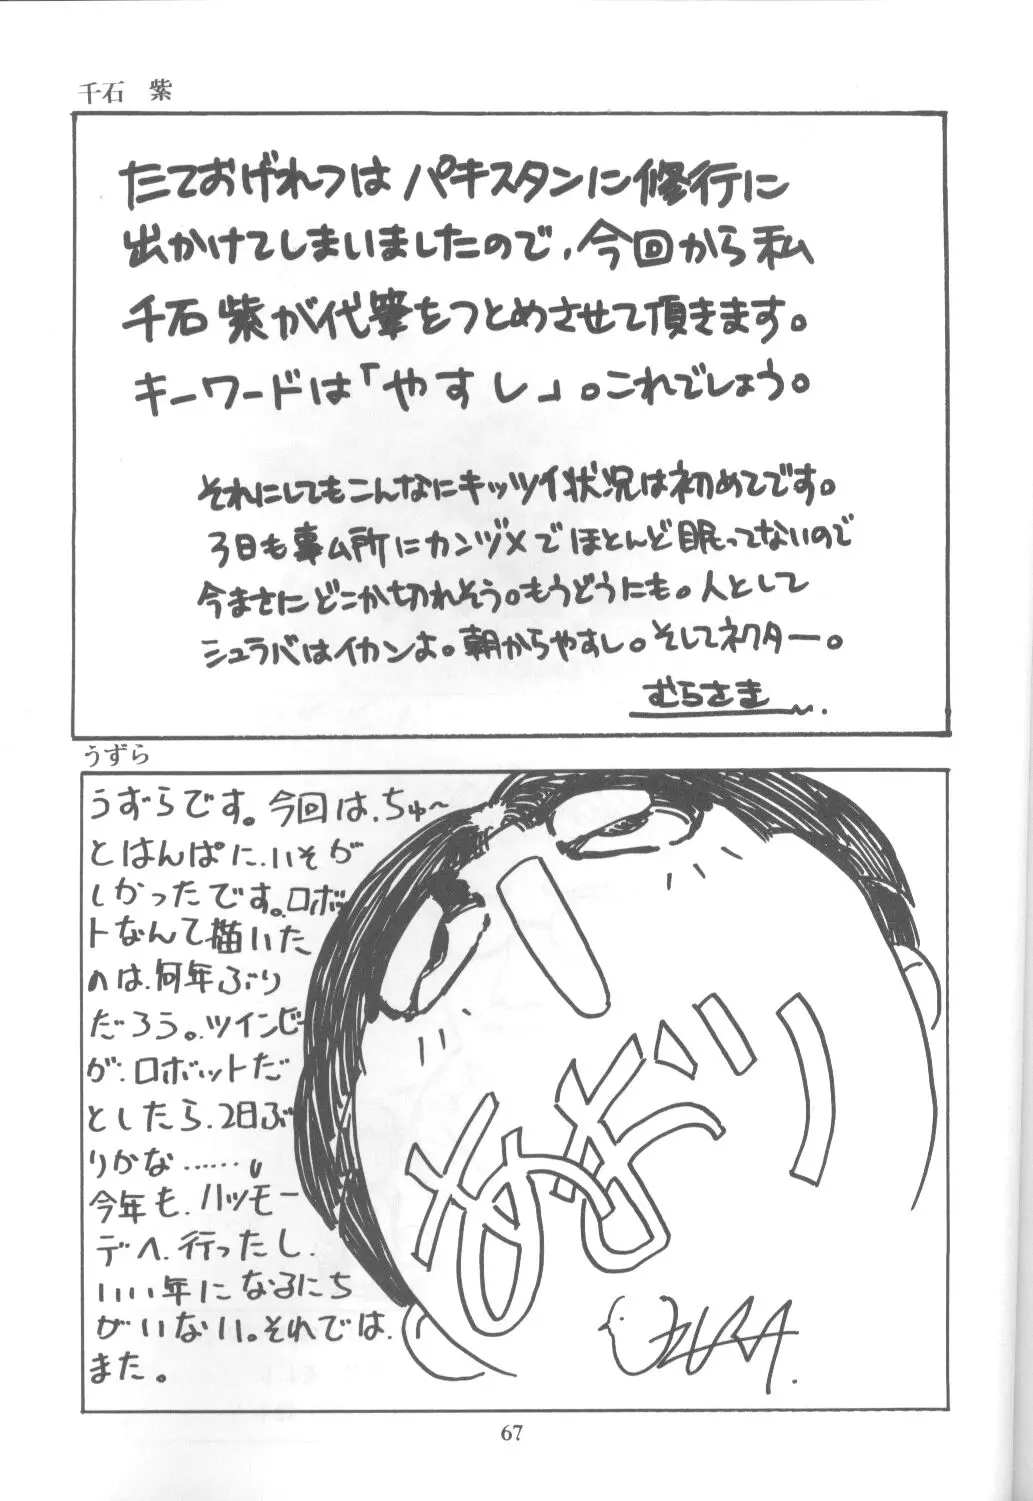 千石　紫
たておげれつは パキスタンに修行に
出かけてしまいましたので、今回から私
千石紫が代筆をつとめさせて頂きます。
キーワードは「やすし」。これでしょう。
それにしてもこんなにキッツイ状況は初めてです。
3日も事ム所にカンヅメでほとんど眠ってないので
今まさにどこか切れそう。もうどうにも。人として
シュラバはイカンよ。朝からやすし。そしてネクター。
むらさき
うずら
うずらです。今回は、ちゅ〜
とはんぱに、いそが
しかったです。ロボッ
トなんて描いた
のは、何年ぶり
だろう。ツインビー
が、ロボットだ
としたら、2日ぶ
りかな……。
今年も、ハツモー
デへ、行ったし、
いい年になるにち
がいない。それでは、
また。
めざし
UZURA.
67